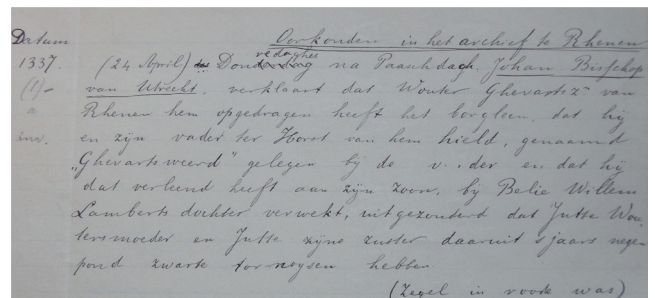 Datum Oorkonden in het archief te Rhenen
1337. (24 April) Donredaghes na Paaschdach, Johan Bisschop
(1) van Utrecht, verklaart dat Wouter Ghevartsz van
a Rhenen hem opgedragen heeft het borgleen, dat hij
en zijn vader ter Horst van hem hield, genaamd
"Ghevartsweerd" gelegen bij de en dat hij
dat verleend heeft aan zijn zoon, bij Belie Willem
Lamberts dochter verwekt, uitgezonderd dat Jutte Wou-
tersmoeder en Jutte zijne zuster daaruit sjaars negen
pond zwarte tornoysen hebben
(Zegel in rook was)